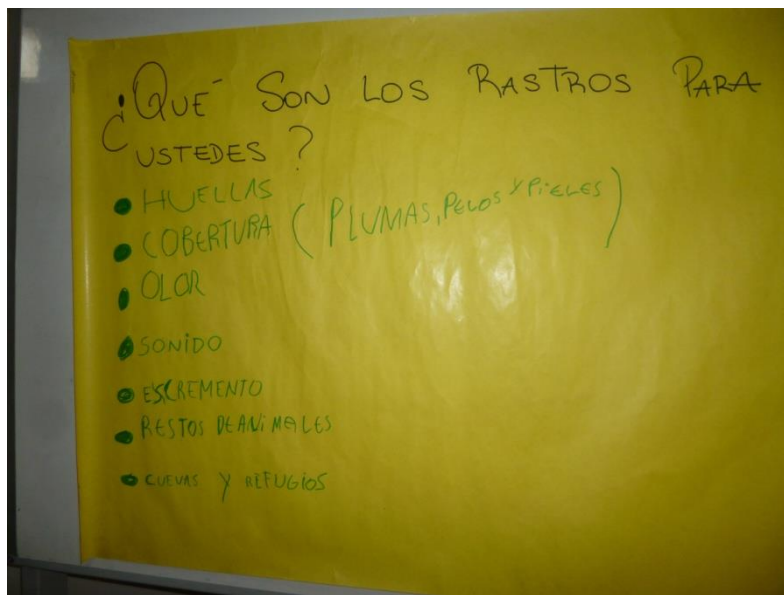 ¿QUÉ SON LOS RASTROS PARA
USTEDES?
• HUELLAS
• COBERTURA (PLUMAS, PELOS Y PIELES)
• OLOR
• SONIDO
• ESCREMENTO
• RESTOS DE ANIMALES
• CUEVAS Y REFUGIOS